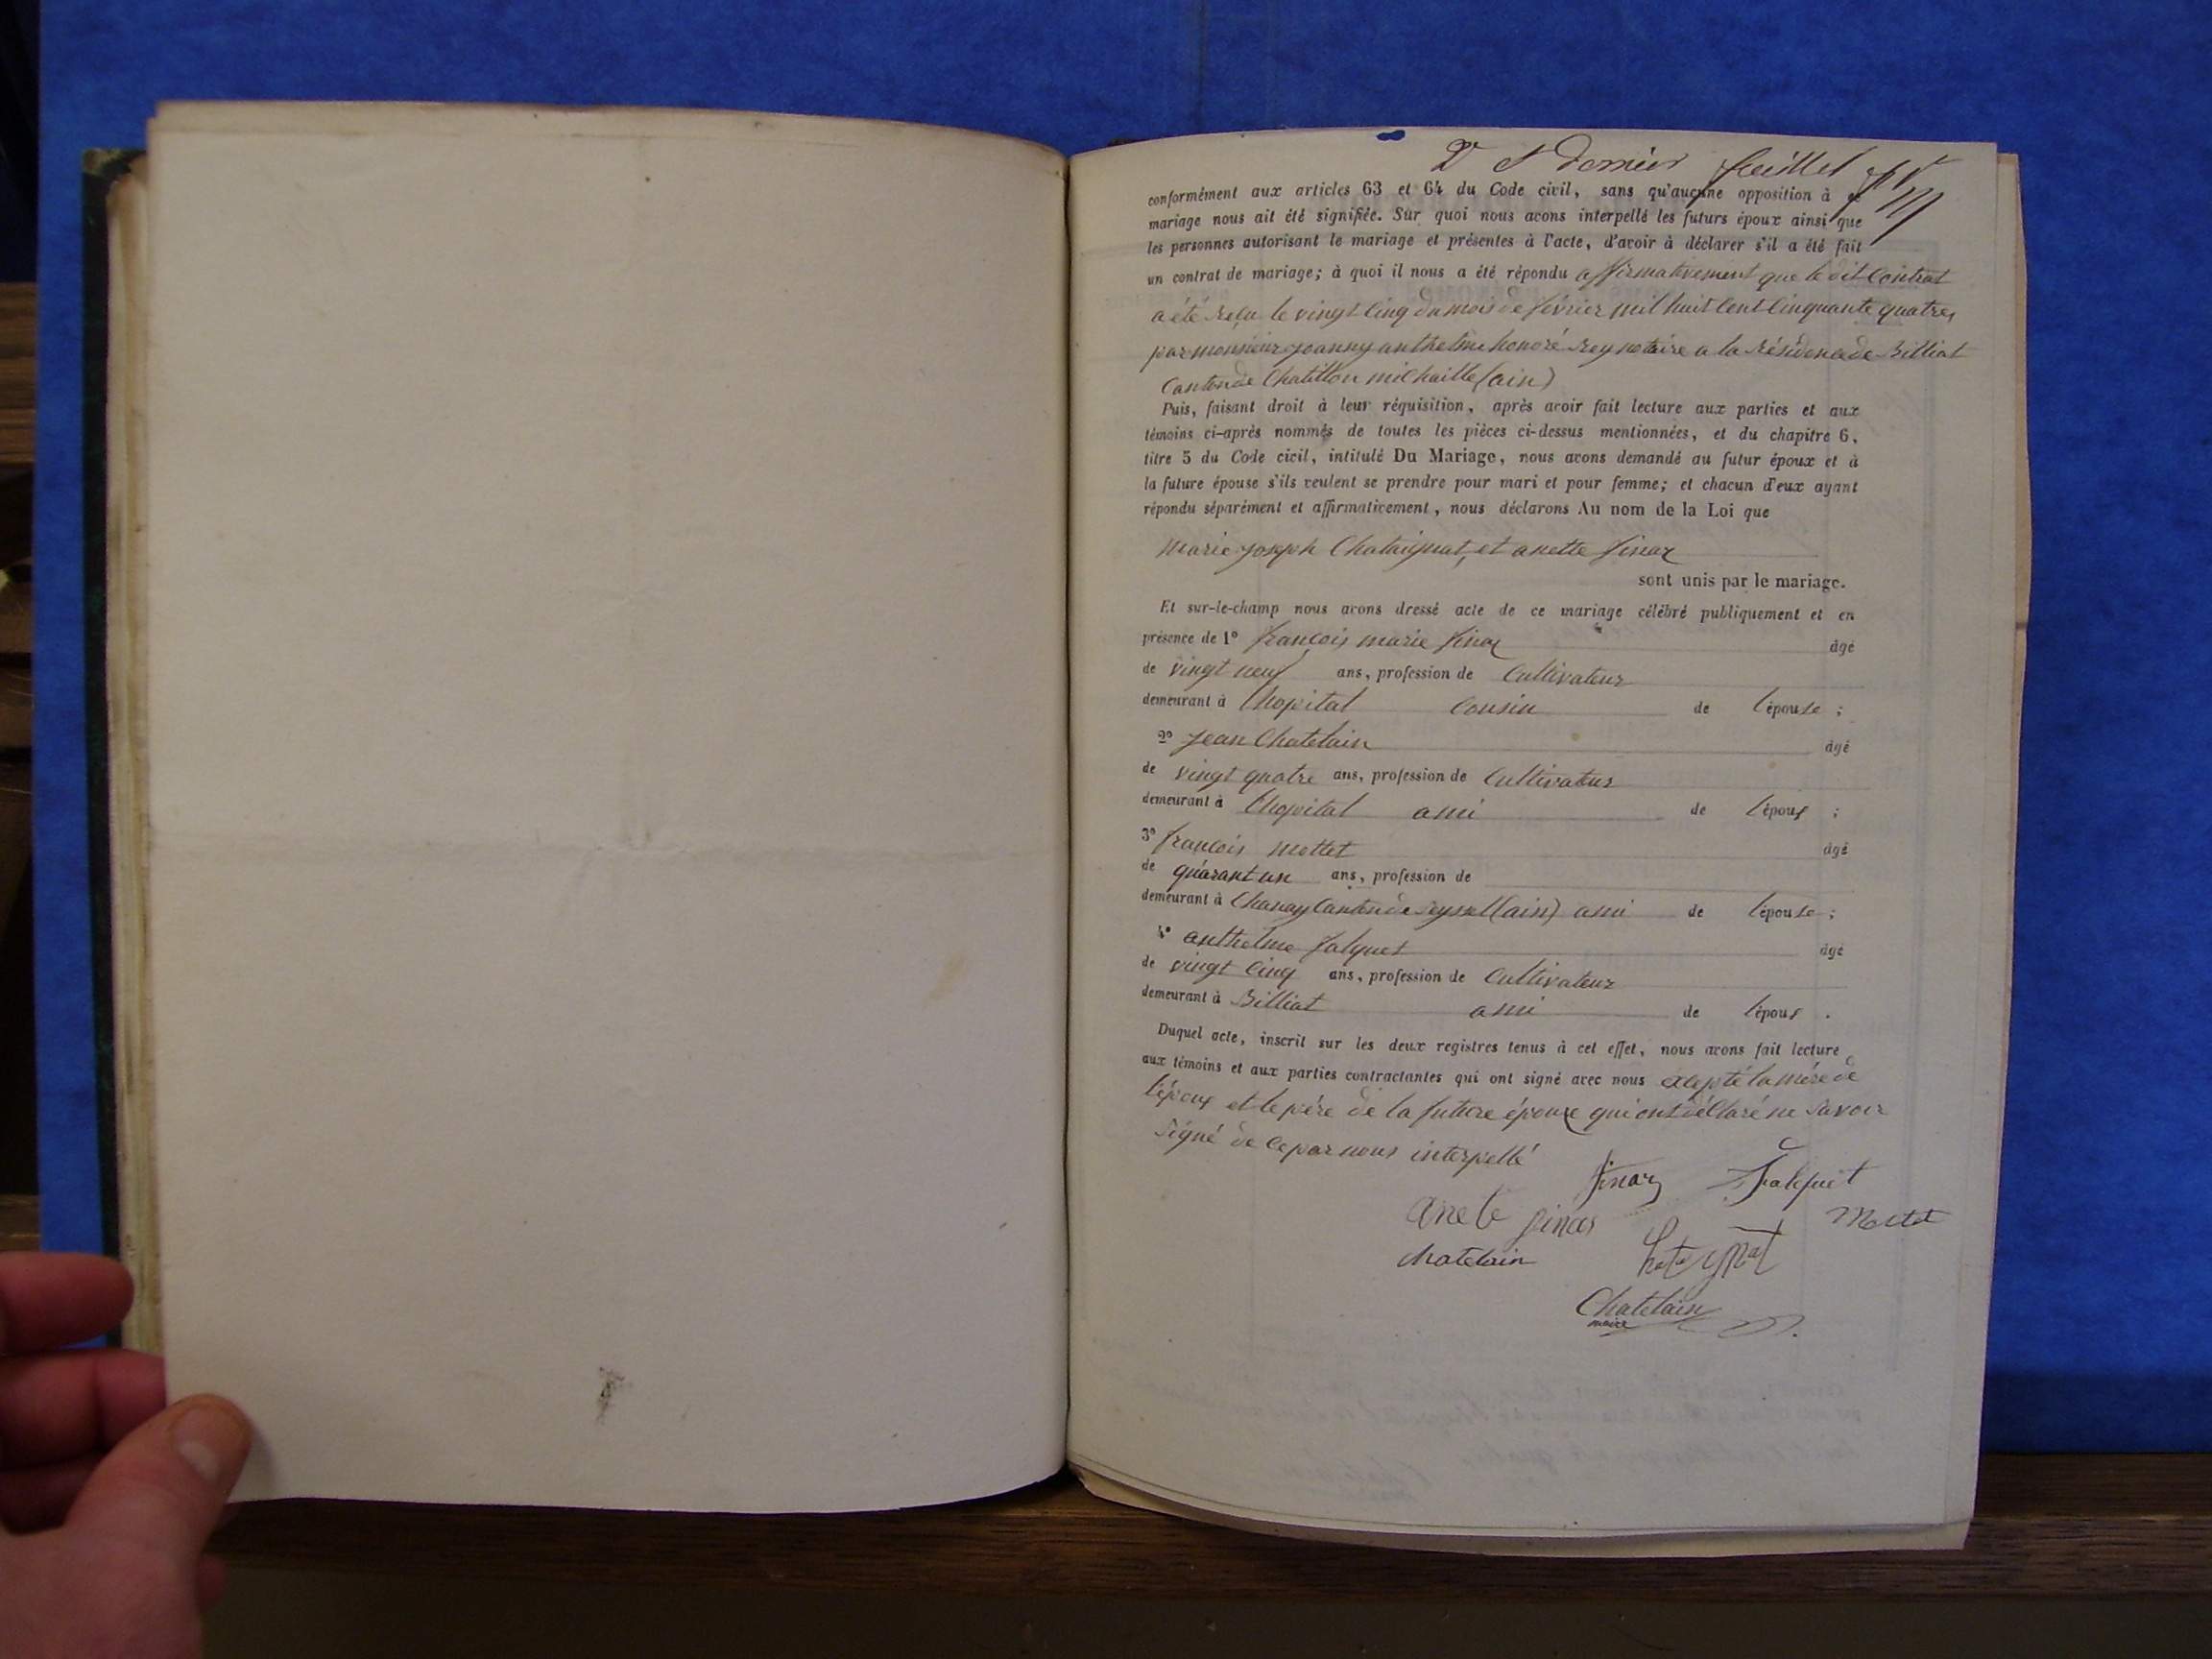 2e et dernier feuillet
conformément aux articles 63 et 64 du Code civil, sans qu'aucune opposition à ce
mariage nous ait été signifiée. Sur quoi nous avons interpellé les futurs époux ainsi que
les personnes autorisant le mariage et présentes à l'acte, d'avoir à déclarer s'il a été fait
un contrat de mariage; à quoi il nous a été répondu affirmativement que le dit Contrat
a été reçu le vingt Cinq du mois de février mil huit Cent Cinquante quatre,
par monsieur joanny anthelme honoré Rey notaire a la Résidence de Billiat
Canton de Chatillon michaille (ain)
Puis, faisant droit à leur réquisition, après avoir fait lecture aux parties et aux
témoins ci-après nommés de toutes les pièces ci-dessus mentionnées, et du chapitre 6,
titre 5 du Code civil, intitulé Du Mariage, nous avons demandé au futur époux et à
la future épouse s'ils veulent se prendre pour mari et pour femme; et chacun d'eux ayant
répondu séparément et affirmativement, nous déclarons Au nom de la Loi que
marie joseph Chataignat, et anette finaz
sont unis par le mariage.
Et sur-le-champ nous avons dressé acte de ce mariage célébré publiquement et en
présence de 1° françois marie finaz âgé
de vingt neuf ans, profession de Cultivateur
demeurant à lhopital Cousin de l'épouse ;
2° jean Chatelain âgé
de vingt quatre ans, profession de Cultivateur
demeurant à lhopital ami de l'époux ;
3° françois mottet âgé
de quarant un ans, profession de
demeurant à Chanay Canton de Seyssel (ain) ami de l'épouse ;
4° anthelme falquet âgé
de vingt Cinq ans, profession de Cultivateur
demeurant à Billiat ami de l'époux .
Duquel acte, inscrit sur les deux registres tenus à cet effet, nous avons fait lecture
aux témoins et aux parties contractantes qui ont signé avec nous exepté la mére de
l'époux et le pére de la future épouse qui ont déclaré ne Savoir
Signé de ce par nous interpellé
finaz falquet
anete finas Mottet
chatelain
Chatelain
maire